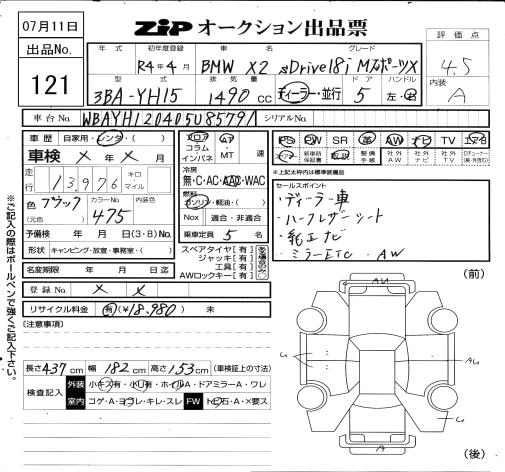 07月11日
ZIP オークション出品票
出品No.
121
年式 初年度登録 車名 グレード
R4年4月 BMW X2 sDrive18i MスポーツX
型式 排気量 ドア ハンドル
3BA-YH15 1490cc ディーラー・並行 5 左・右
評価点
4.5
内装
A
車台No. WBAYH120405U85791 シリアルNo.
車歴 自家用・レンタ・( )
車検 × 年 × 月
走行 13,976 キロ・マイル
色(元色) ブラック カラーNo 475 内装色
予備検 年 月 日(3・8)No.
形状 キャンピング・放宣・事務室・( )
名変期限 年 月 日迄
フロア コラム インパネ AT・MT 速
冷房
無・C・AC・AAC・WAC
燃料
ガソリン・軽油・( )
Nox 適合・非適合
乗車定員 5 名
スペアタイヤ[有]
ジャッキ[有]
工具[有]
AWロックキー[有]
ある場合のみ○
PS PW SR 革 AW ナビ TV エアB
スペアキー 新車時保証書 取説 整備手帳 社外AW 社外ナビ 社外TV
※上記太枠内は標準装備品
セールスポイント
・ディーラー車
・ハーフレザーシート
・純正ナビ
・ミラーETC ・AW
登録No. × ×
リサイクル料金 有(¥18,980) 未
[注意事項]
長さ437cm 幅182cm 高さ153cm (車検証上の寸法)
検査記入 外装 小キズ有・小U有・ホイルA・ドアミラーA・ワレ
室内 コゲ・A・ヨゴレ・キレ・スレ FW トビ石・A・×要ス
※ご記入の際はボールペンで強くご記入下さい。
(前)
AU
U
AU
U
A
(後)